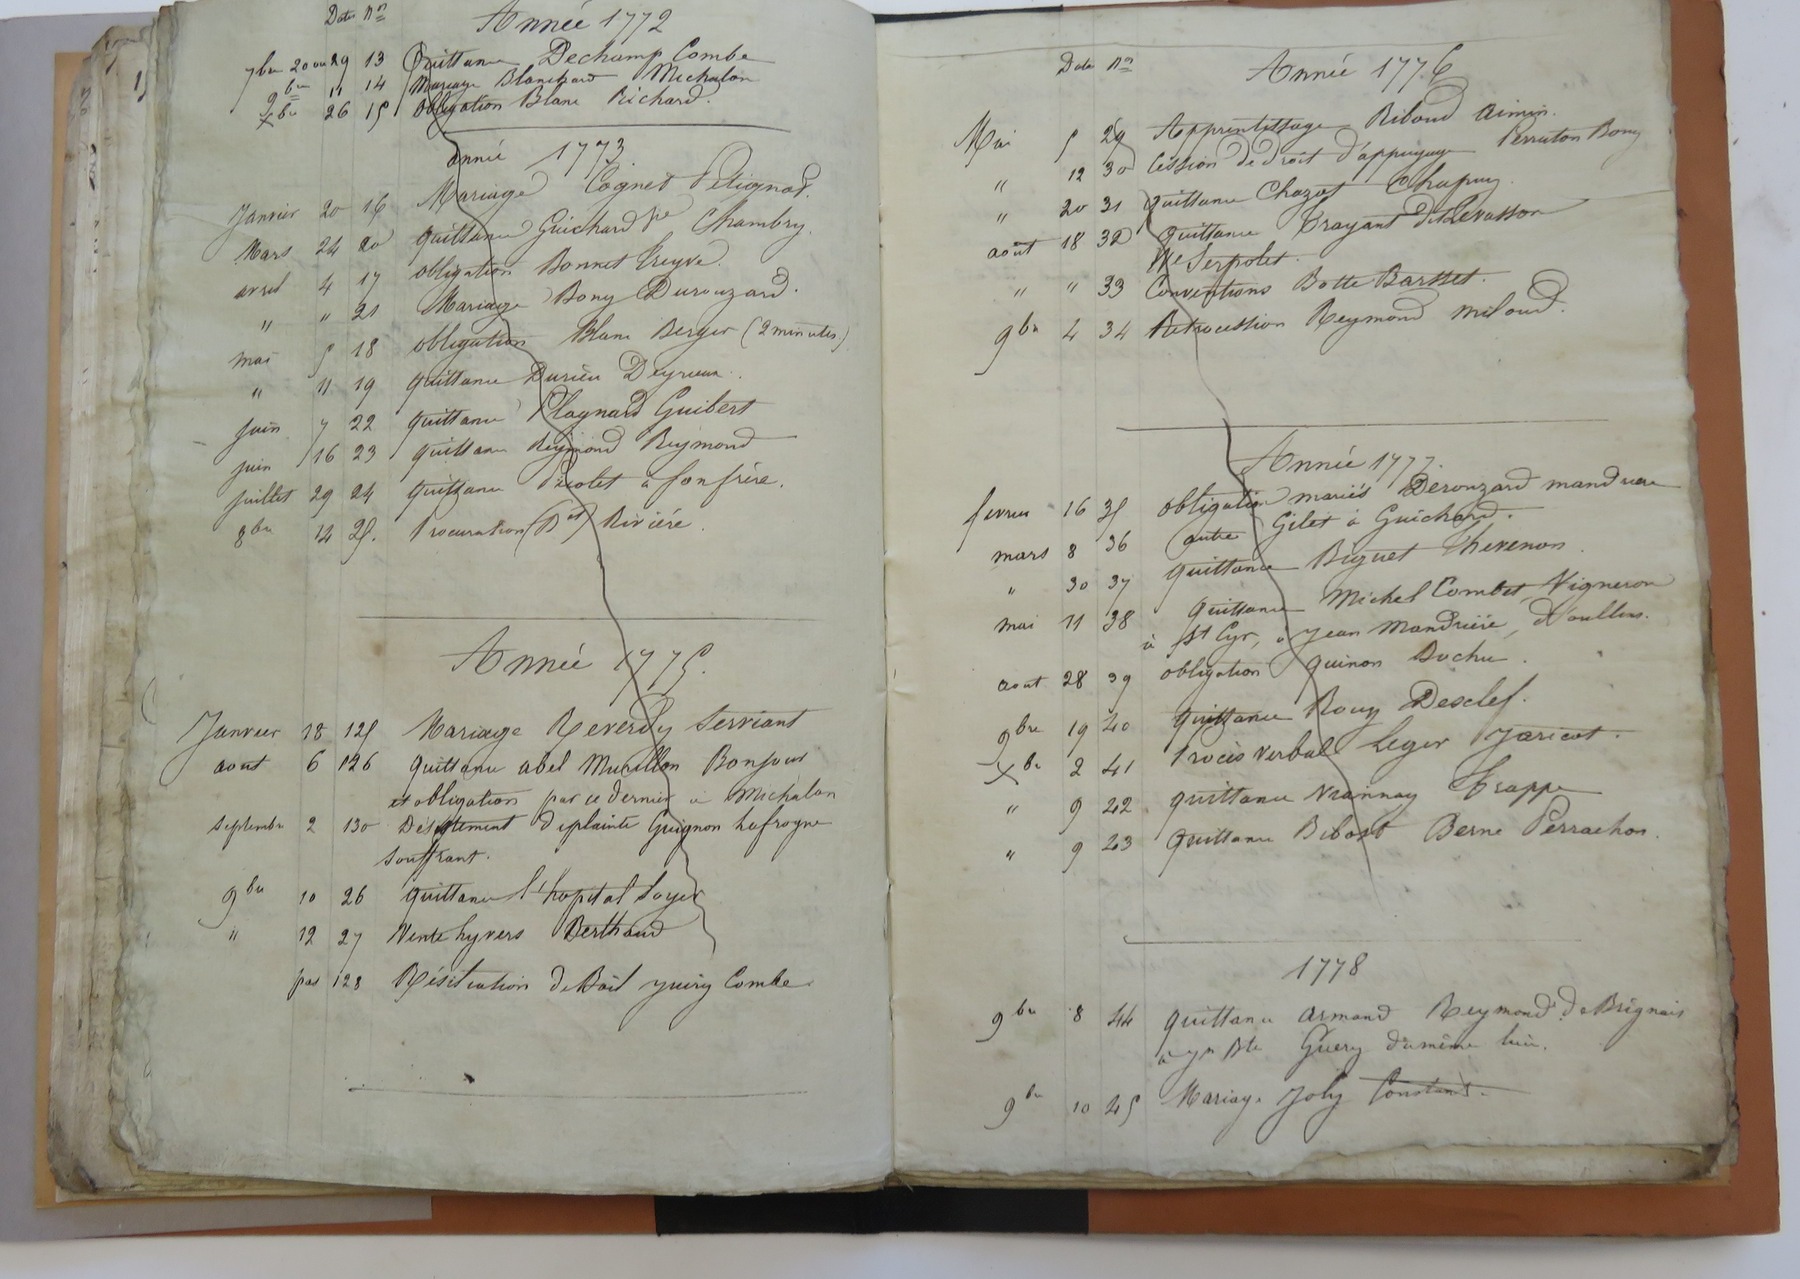 Dates Nos
Année 1772
7bre 20 ou 29 13 Quittance Dechamp Combe
9bre 11 14 Mariage Blanchard Michalon
Xbre 26 15 Obligation Blanc Richard.
année 1773.
Janvier 20 16 Mariage Cognet Petignat.
Mars 24 20 quittance Guichard Chambry.
avril 4 17 obligation Bonnet Treyve.
" " 21 Mariage Bony Durouzard.
mai 5 18 obligation Blanc Berger (2 minutes)
" 11 19 quittance Durieu Deyrieux.
juin 7 22 quittance Plagnard Guibert
juin 16 23 quittance Reymond Reymond
juillet 29 24 quittance Piolet à son frère.
8bre 12 25. Procuration (Bt) Rivière.
Année 1775.
Janvier 18 125 Mariage Reverdy Serviant
aout 6 126 quittance abel Murillon Bonjour
et obligation par ce dernier à Michalon
septembre 2 130 Désistement de plainte Guignon Lafrogne
Souffrant.
9bre 10 26 quittance l'hopital Loyer
" 12 27 Vente hyvers Berthaud
pas 128 Résiliation de Bail Combe
Date No
Année 1776
Mai 5 29 Apprentissage Riboud aimin.
" 12 30 Cession de droit d'appuyage Perraton Bony
" 20 31 quittance Chazot Chapuy.
août 18 32 quittance Trayant dit Levasson
Ve Serpolet.
" " 33 Conventions Botte Barsset.
9bre 4 34 Retrocession Reymond miloud.
Année 1777.
fevrier 16 35 obligation mariés Derouzard mandriere
mars 8 36 autre Gilet à Guichard.
" 30 37 quittance Biguet Thevenon.
mai 11 38 quittance Michel Combet, Vigneron
à St Cyr, à Jean Mandrière, d'oullins.
aout 28 39 obligation quinon Duchu.
9bre 19 40 quittance Rouy Desclef.
Xbre 2 41 Procès verbal Leger Jaricot.
" 9 42 quittance Vrainnay Frappe
" 9 43 quittance Bibost Berne Perrachon.
1778
9bre 8 44 quittance armand Reymond de Brignais
à Jn Bte Guery du même lieu.
9bre 10 45 Mariage Joly Constand.